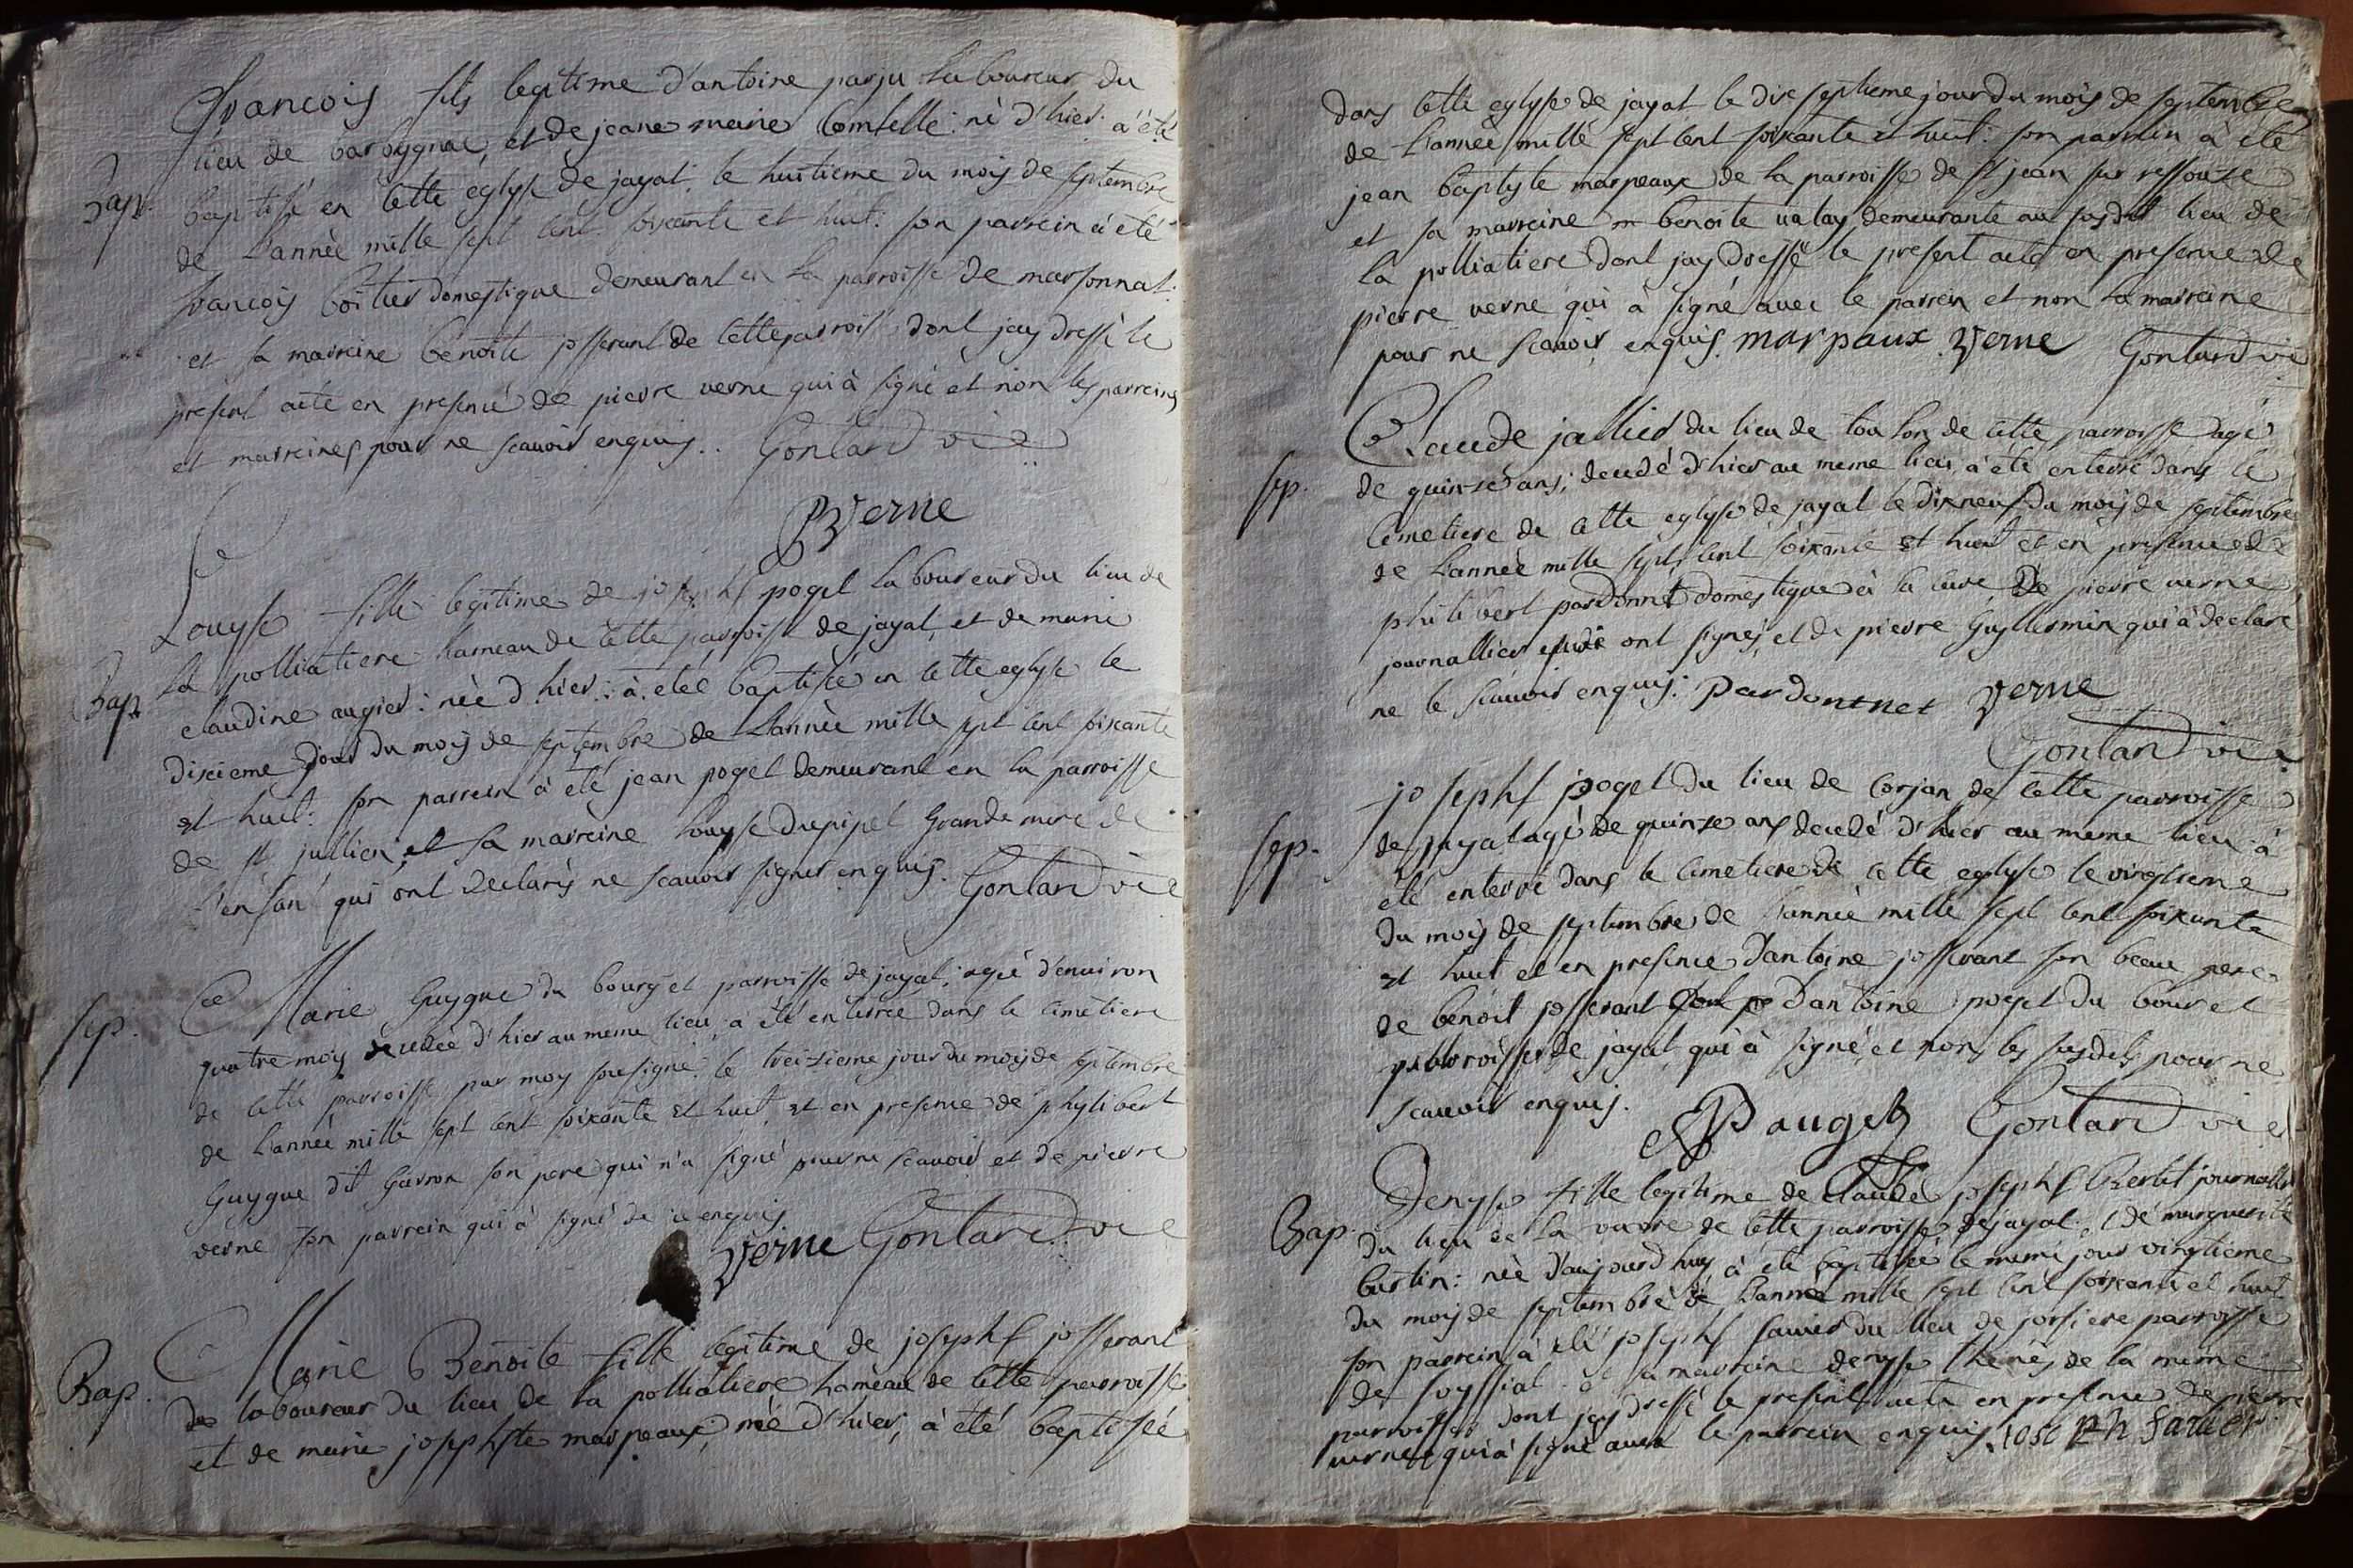 François fils legitime d'antoine parju laboureur du
Bap. lieu de baroygnac, et de jeane marie Comtelle: nè d'hier a été
baptisé en cette eglyse de jayat le huitieme du mois de septembre
de L'année mille sept cent soixante et huit: son parrein à été
françois boitier domestique demeurant en la parroisse de marsonnat
et sa marreine benoite josserant de cette parroiss dont jay dressé le
present acte en presence de pierre verne qui à signé et non les parreins
et marreines pour ne scavoir enquis.. Gontard vic
P Verne
Louyse fille legitime de josephf pogel laboureur du lieu de
Bap. la polliatiere hameau de cette parroisse de jayat, et de marie
claudine augier: née d'hier: à étée baptisée en cette eglyse le
dixieme jour du mois de septembre de L'année mille sept cent soixante
et huit: son parrein à été jean pogel demeurant en la parroisse
de st jullien, et sa marreine louyse dupipel Grande mere de
l'enfan qui ont declarés ne scavoir signer enquis. Gontard vic
Marie Guygue du bourg et parroisse de jayat; agée d'environ
sep. quatre mois decedée d'hier au meme lieu, à été enterrée dans le cimetiere
de cette parroisse par moy sousigné: le treizieme jour du mois de septembre
de L'année mille sept cent soixante et huit et en presence de phylibert
Guygue dit Garron son pere qui n'a signé pour ne scavoir et de pierre
verne son parrein qui à signé de ce enquis
Verne Gontard vic
Marie Benoite fille legitime de josephf josserant
Bap. laboureur du lieu de la polliatiere hameau de cette parroisse
et de marie josephte marpeaux, née d'hier, à été baptisée
dans cette eglyse de jayat le dix septieme jour du mois de septembre
de L'année mille sept cent soixante et huit: son parrein à été
jean baptyste marpeaux de la parroisse de st jean sur ressouze
et sa marreine benoite demeurante au susdit lieu de
la polliatiere dont jay dressé le present acte en presence de
pierre verne qui à signé avec le parrein et non la marreine
pour ne scavoir enquis. marpaux Verne Gontard vic
Claude jallier du lieu de de cette parroisse agé
sep. de quinze ans; decedé d'hier au meme lieu à été enterré dans le
cimetiere de cette eglyse de jayat le dixneuf du mois de septembre
de L'année mille sept cent soixante et huit et en presence de
philibert pardonnet domestique à la cure de pierre verne
journallier ont signés, et de pierre Guyllermin qui à declaré
ne le scavoir enquis: pardontnet Verne
Gontard vic
josephf pogel du lieu de Corjan de cette parroisse
sep. de jayat agé de quinze ans decedé d'hier au meme lieu à
été enterré dans le cimetiere de cette eglyse le vingtieme
du mois de septembre de L'année mille sept cent soixante
et huit et en presence d'antoine josserant son beau pere
de benoit josserant d'antoine pogel du bour et
parroisse de jayat qui à signé, et non les susdits pour ne
scavoir enquis. A Pauget Gontard vic
Denyse fille legitime de Claude josephf journallier
Bap. du lieu de la vavre de cette parroisse de jayat, et de marguerite
burtin: née d'aujourdhuy à été baptisée le meme jour vingtieme
du mois de septembre de L'année mille sept cent soixante et huit
son parrein à été josephf favier du lieu de parroisse
de foyssiat et sa marreine denyse de la meme
parroisse dont jay dressé le present acte en presence de pierre
verne qui à signé avec le parrein enquis. iosePh favier